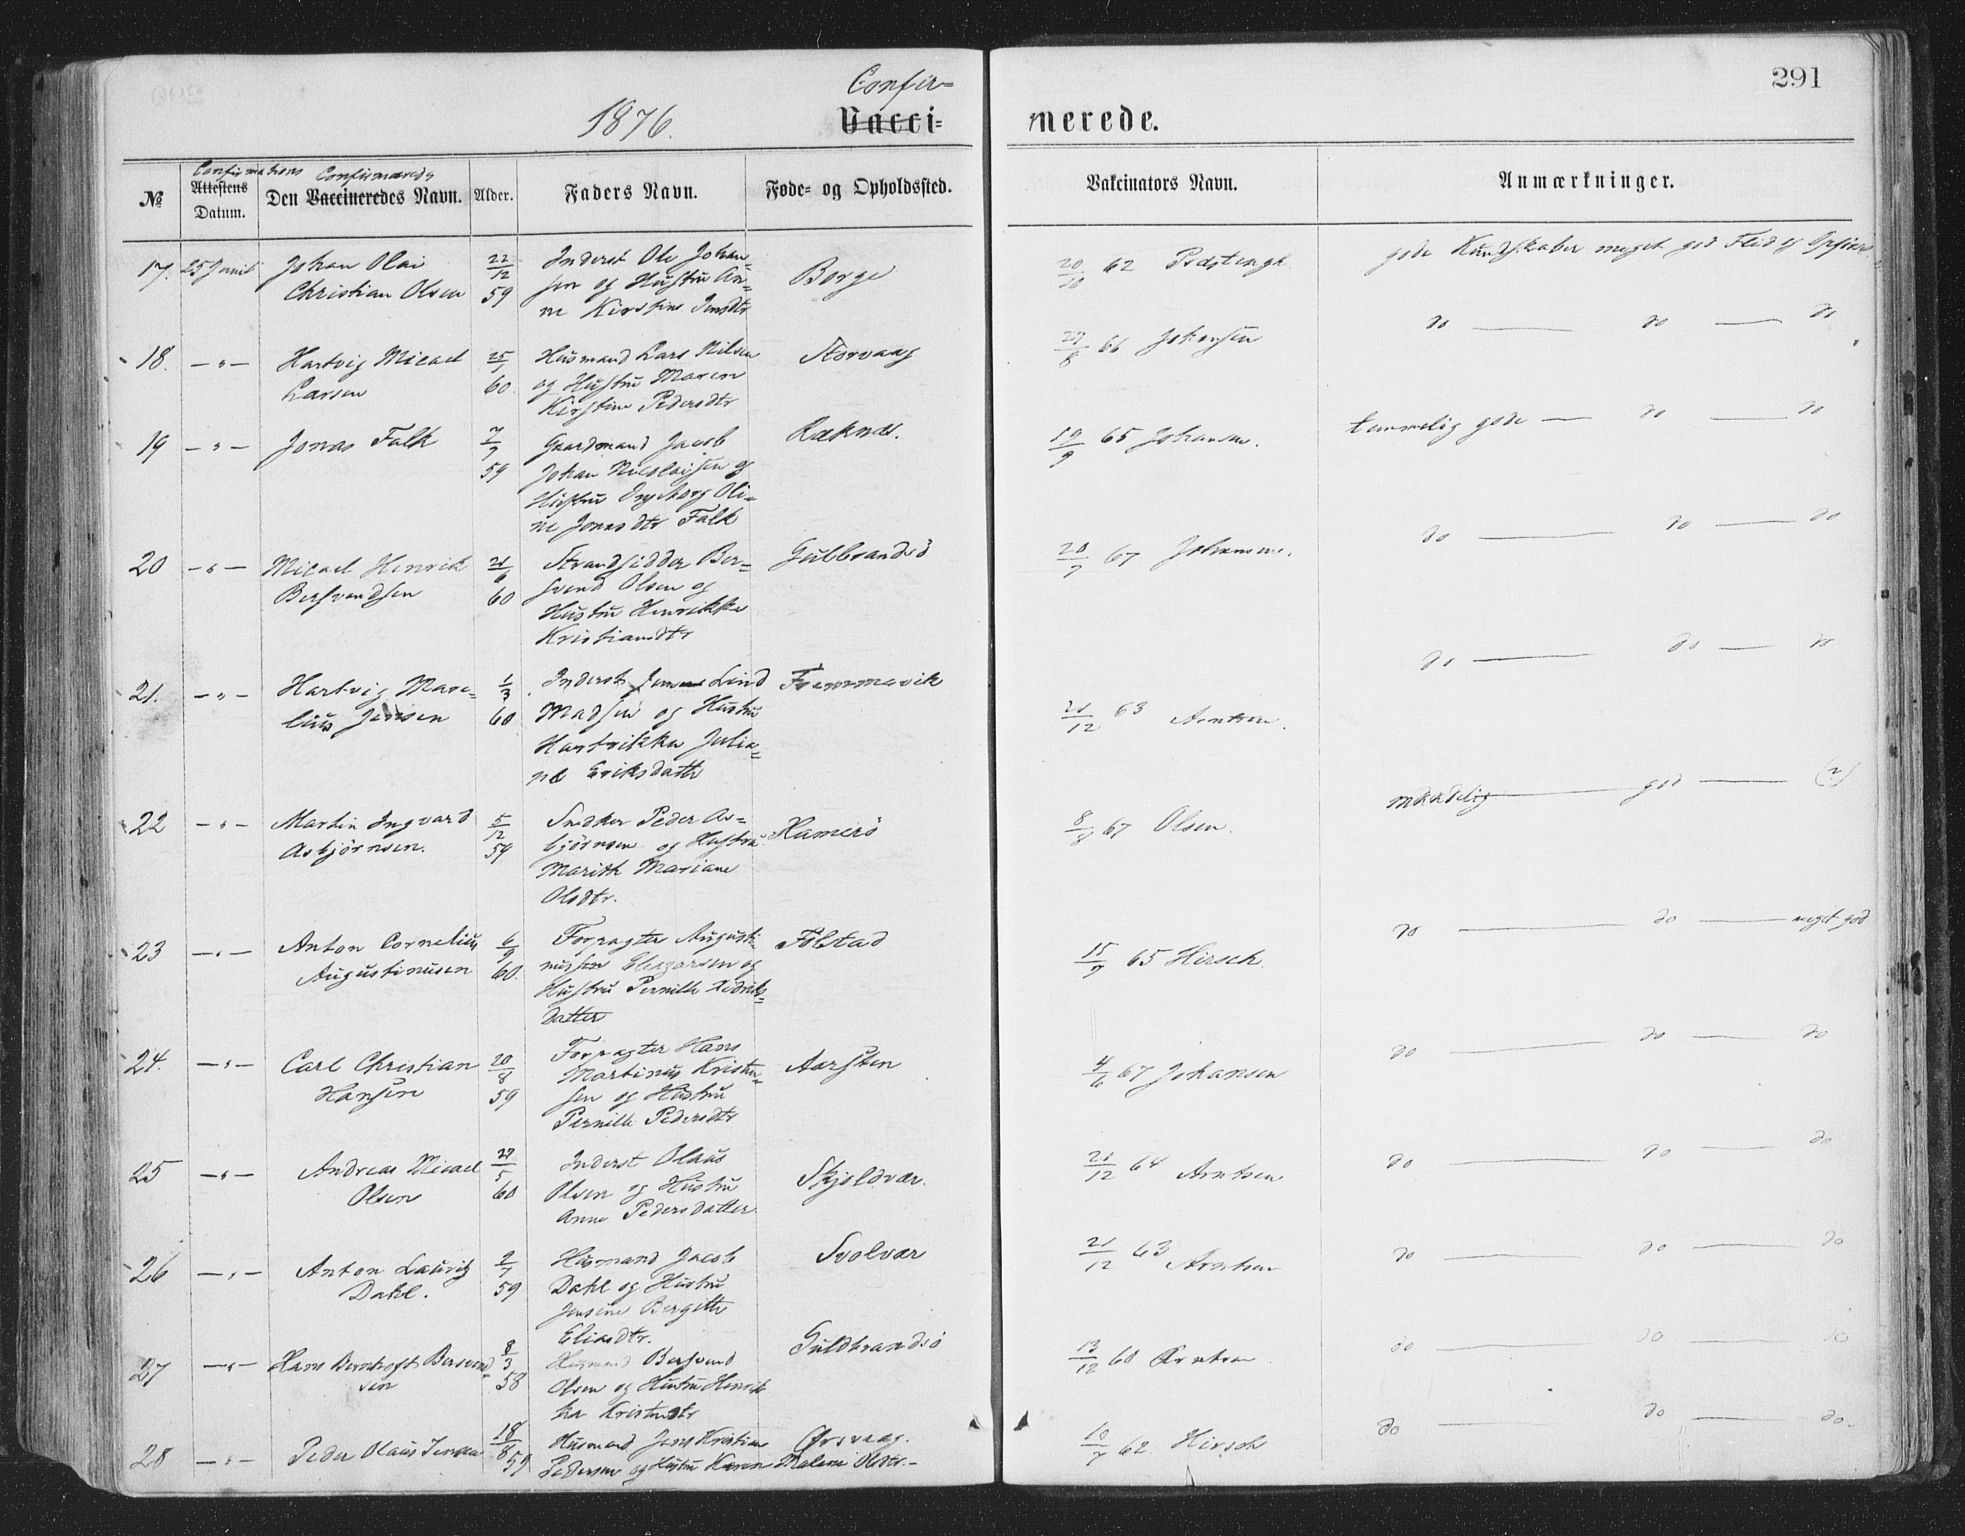 291
1876.
Confir=
Vacci=
merede.
Confirmations Confirmerede
№
Attestens Datum.
Den Vaccineredes Navn.
Alder.
Faders Navn.
Føde- og Opholdssted.
Vakcinators Navn.
Anmærkninger.
17. 25 Juni Johan Olai 22/12 Inderst Ole Johan= Borge 62 gode Kundskaber meget god Flid og
Christian Olsen 59 sen og Hustru An=
ne Kirstine Jensdtr
18. — " — Hartvig Micael 25/1 Husmand Lars Nilsen Storvaag 66 Johansen do — do — do
Larsen 60. og Hustru Maren
Kirstine Pedersdtr
19 — " — Jonas Falk 7/7 Gaardmand Jacob Ræknes. 19/9 65 Johansen. temmelig gode — do — do
59 Johan Nicolaysen og
Hustru Ingeborg Oli=
ne Jonasdtr Falk
20 — " — Micael Henrik 21/6 Strandsidder Ber= Gulbrandsö 67 Johansen. do — do — do
Bersvendsen 60 svend Olsen og
Hustru Henrikke
Kristiansdtr
21. — " — Hartvig Mare= 1/3 Inderst Lind Fremmervik 21/12 63 Arntsen. do — do — do
lius Jensen 60 Madsen og Hustru
Hartvikka Julia=
na Eriksdatte
22 — " — Martin Ingvard 5/12 Snedker Peder As= Hamerö 8/8 67 Olsen. maadelig — god — (2)
Asbjørnsen. 59 bjørnsen og Hustru
Marith Mariane
Olsdtr.
23 — " — Anton Cornelius 6/9 Forpagter Augusti= Følstad 15/9 65 Hirsch. do — do — meget god
Augustinusen 60. nussen Eleazarsen og
Hustru Pernille
datter
24. — " — Carl Christian 20/8 Forpagter Hans Aarsten 4/6 67 Johansen do — do — do
Hansen 59 Martinus Kristen=
sen og Hustru
Pernille Pedersdtr
25 — " — Andreas Micael 27/5 Inderst Olaus Skjoldvær. 21/12 64 Arntsen do — do — do
Olsen 60 Olsen og Hustru
Anne Pedersdatter
26 — " — Anton Lauritz 2/7 Husmand Jacob Svolvær 21/12 63 Arntsen do — do — do
Dahl. 59 Dahl og Hustru
Jensine Bergitte
Eliasdtr.
27 — " — Hans Berntoft Bersvend= 8/3 Husmand Bersvend Guldbrandsö 13/12 60 Arntsen. do — do — do
sen 58 Olsen og Hustru Henrik
ka Kristensdtr
28 — " — Peder Olaus Jensen 18/8 Husmand Jens Kristian Ørsvaag. 10/7 62. Hirsch do — do — do.
59 Pedersen og Hustru Karen Maline Olsdtr.